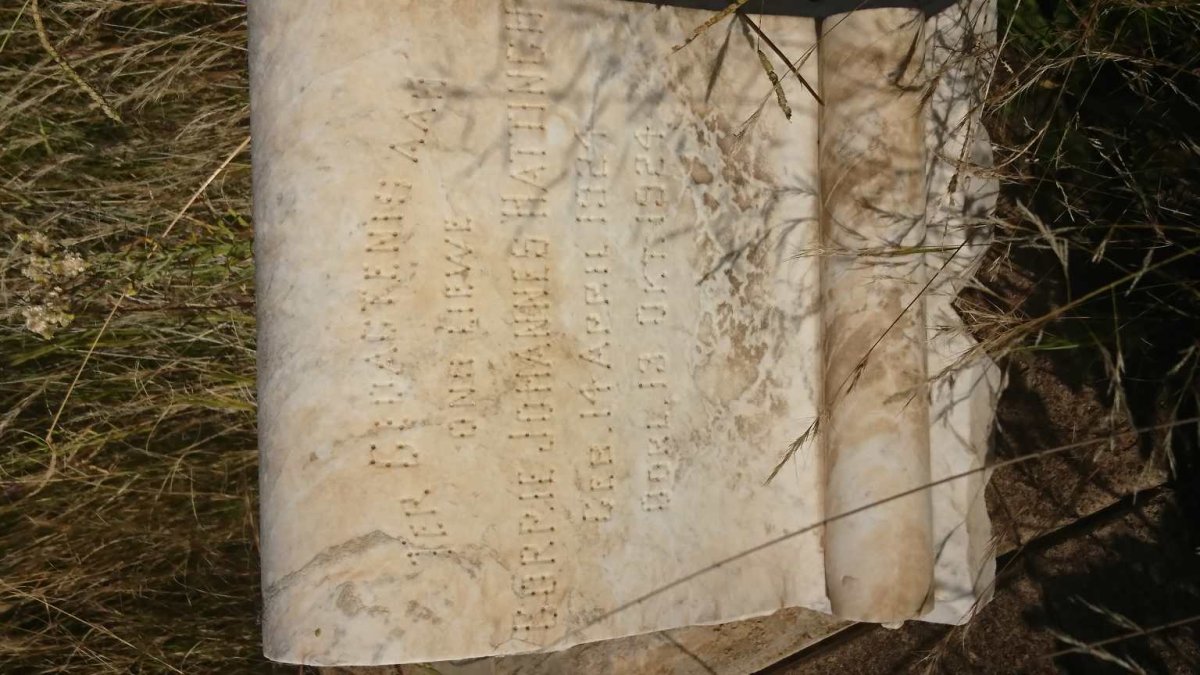 TER GEDAGTENIS AAN
ONS LIEWE
SOPHIE JOHANNES HATTINGH
GEB. 14 APRIL 1924
OORL. 13 OKT. 1924